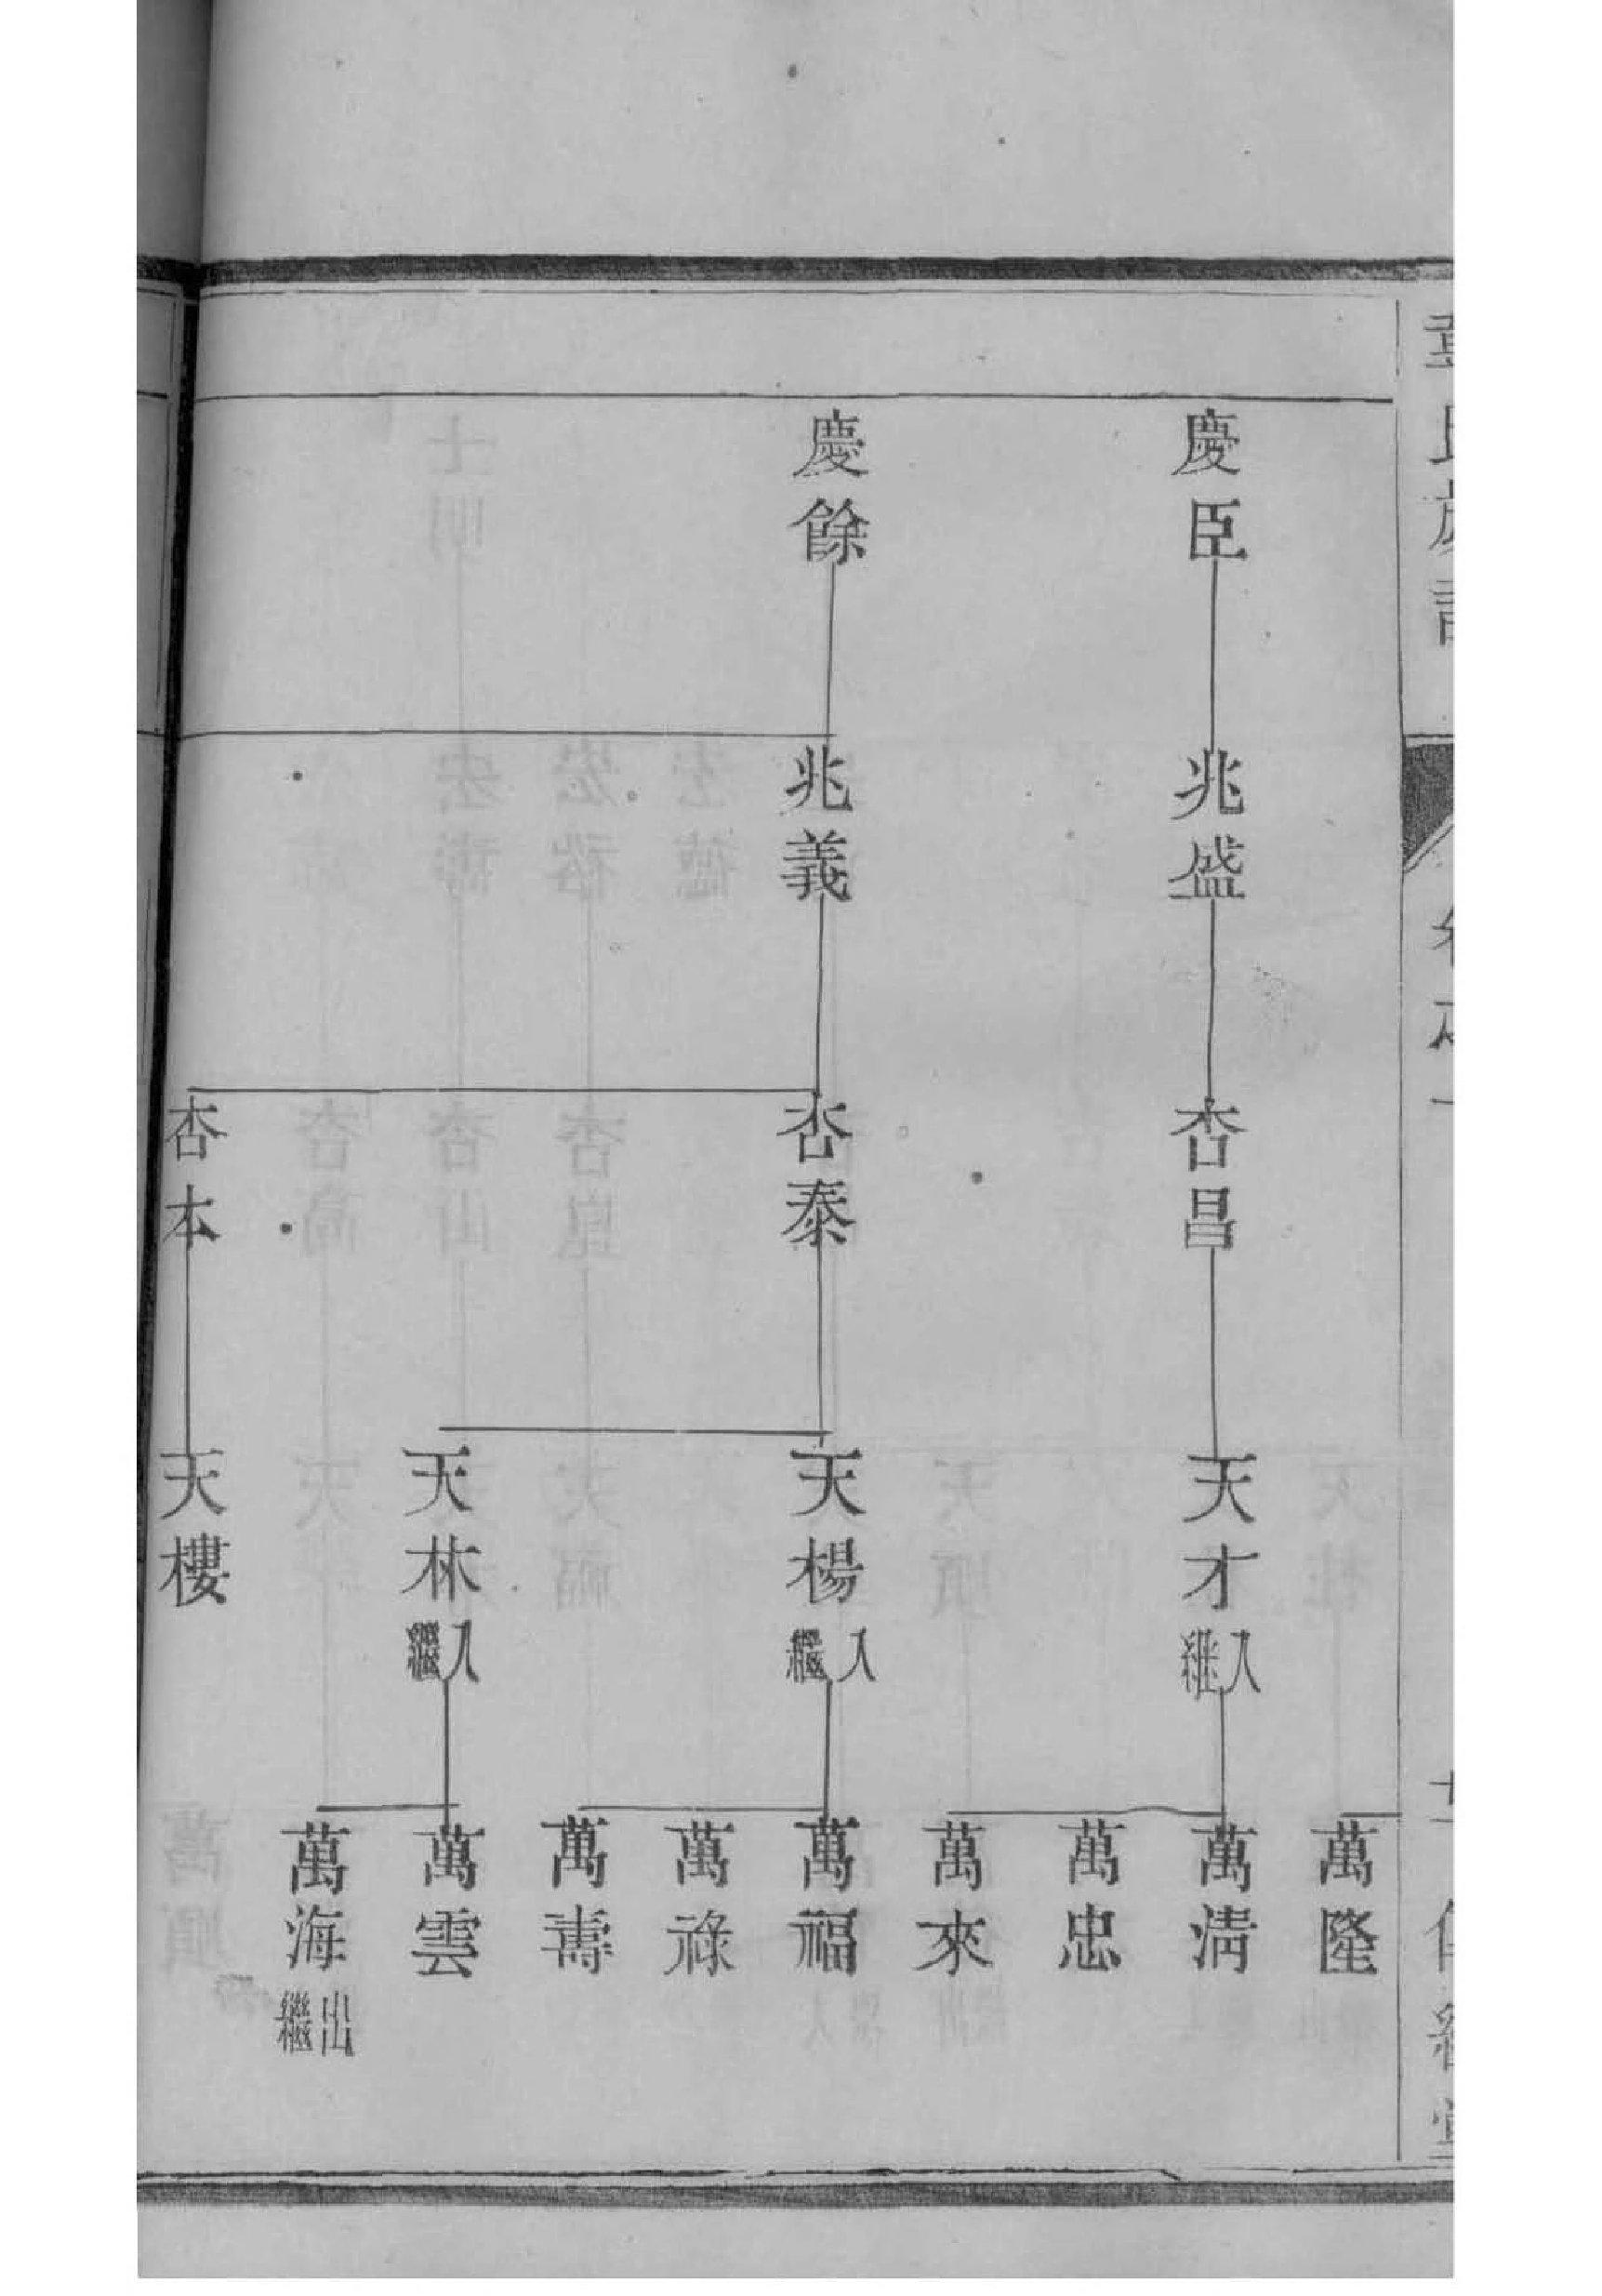 慶臣
慶餘
兆盛
兆義
杏昌
杏泰
杏本
天才入继
天楊入繼
天林入繼
天樓
萬隆
萬淸
萬忠
萬來
萬福
萬祿
萬壽
萬雲
萬海出繼